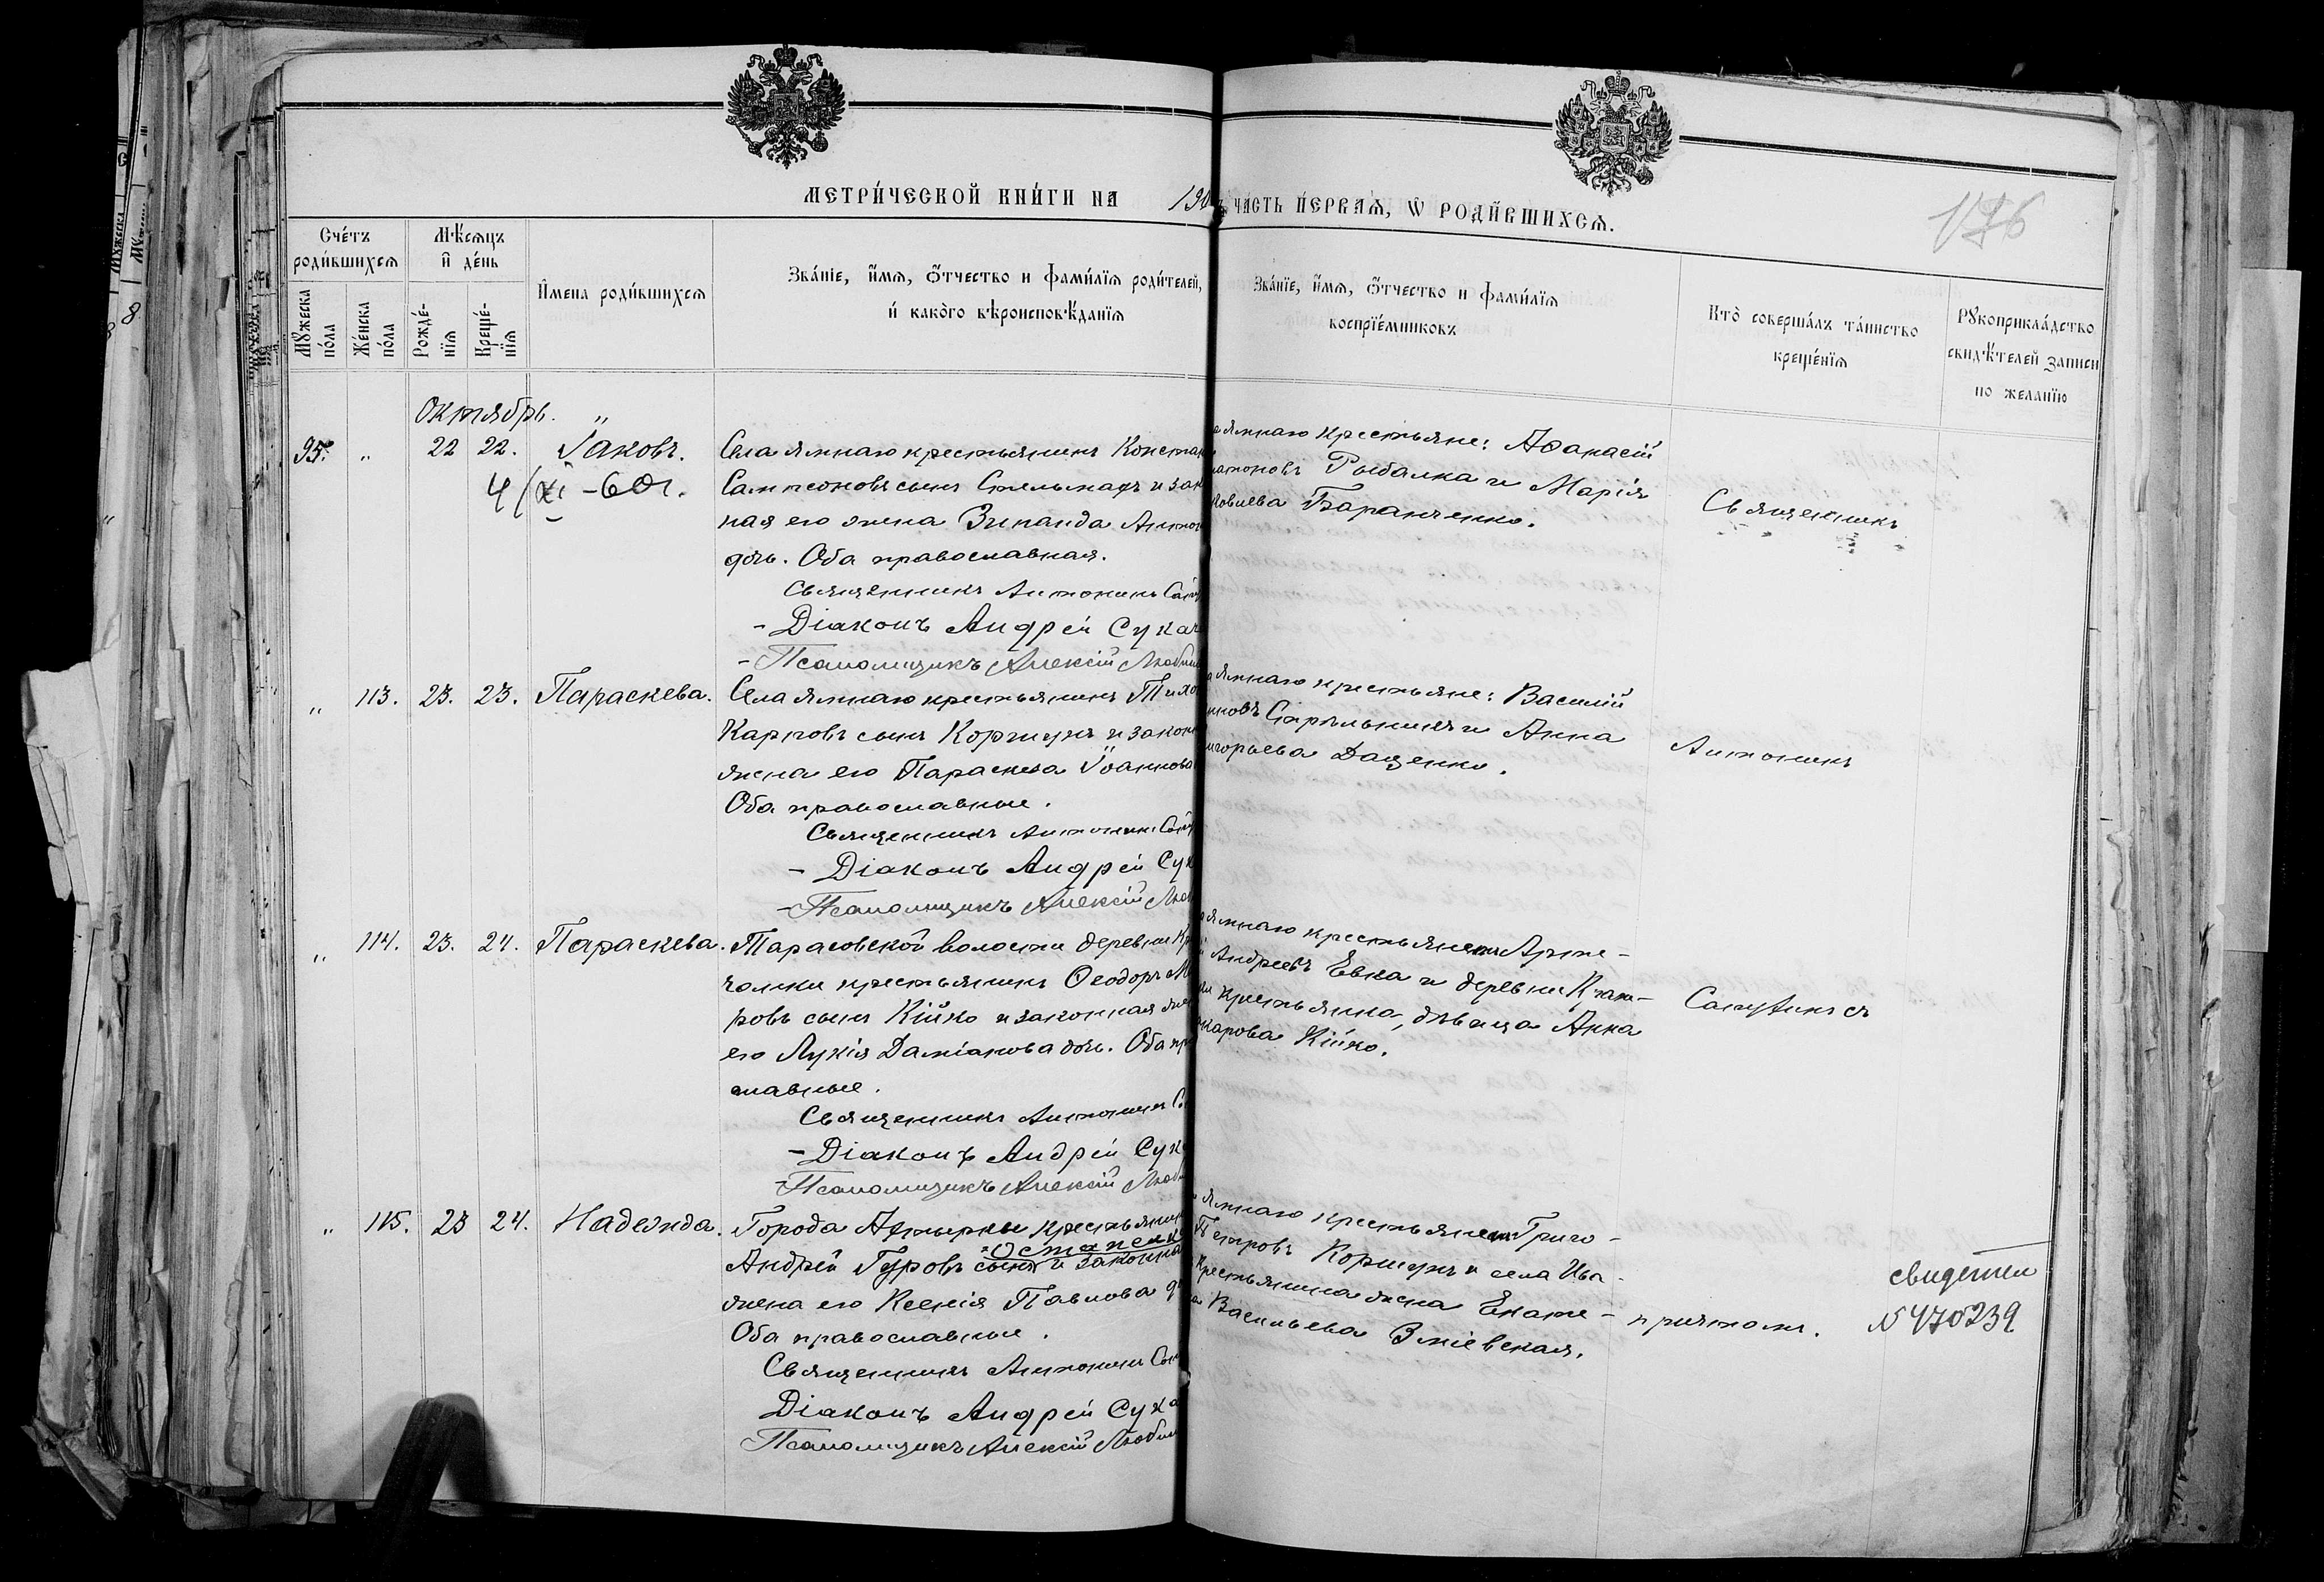 МЕТРИ́ЧЕСКОЙ КНИ́ГИ НА 190
Ъ ЧАСТЬ ПЕ́РВАѦ, Ѡ РОДИ́ВШИХСѦ.
176
Сче́тъ
роди́вшихсѧ
Мѣ́сѧцъ
и҆ де́нь
Мꙋ́жеска
по́ла
Же́нска
по́ла
Рожде́-
нїѧ
Креще́-
нїѧ
И҆мена роди́вшихсѧ
Зва́нїе, и҆́мѧ, о҆́тчество и фами́лїѧ роди́телей,
и҆ како́го вѣроисповѣ́данїѧ
Зва́нїе, и҆́мѧ, о҆́тчество и фами́лїѧ
воспрїе́мниковъ
Кто̀ соверша́лъ та́инство
креще́нїѧ
Рꙋкоприкла́дство
свидѣ́телей записи
по жела́нїю
Октябрь.
95. " 22 22. Іаковъ.
4/XI – 60 г.
Села Ямнаго крестьянинъ Конста
Сампсоновъ сынъ Стельмахъ и зак
ная его жена Зинаида Антон
дочь. Оба православная.
Священникъ Антонинъ
– Діаконъ Андрей Сукач
– Псаломщикъ Алексій Любиц
Ямнаго крестьяне: Аѳанасій
Рыбалка и Марія
Баранченко.
Священникъ
" 113. 23. 23. Параскева.
Села Ямнаго крестьянинъ Тихо
Карповъ сынъ Коршунъ и законн
жена его Параскева Іоаннова
Оба православные.
Священникъ Антонинъ
– Діаконъ Андрей Сук
– Псаломщикъ Алексій Люб
Ямнаго крестьяне: Василій
Стрельникъ и Анна
игорьева Даценко.
Антонинъ
" 114. 23. 24. Параскева.
Тарасовской волости деревни
крестьянинъ Ѳеодоръ М
ровъ сынъ Кійко и законная же
его Лукія Даміанова дочь. Оба пр
славные.
Священникъ Антонинъ
– Діаконъ Андрей Сук
– Псаломщикъ Алексій Люб
Ямнаго крестьянинъ Арте-
Андреевъ Евка и деревни
крестьянка, дѣвица Анна
карова Кійко.
съ
" 115. 23 24. Надежда.
Города Ахтырки крестьянинъ
Остапенк
Андрей Гуровъ сынъ и законна
жена его Ксенія Павлова д
Оба православные.
Священникъ Антонинъ
Діаконъ Андрей Сука
Псаломщикъ Алексій Любиц
Ямнаго крестьянинъ Григо-
Петровъ Коршунъ и села Ива-
крестьянина жена Екате-
Васильева Зміевская.
причтомъ.
свидетел
№ 470239